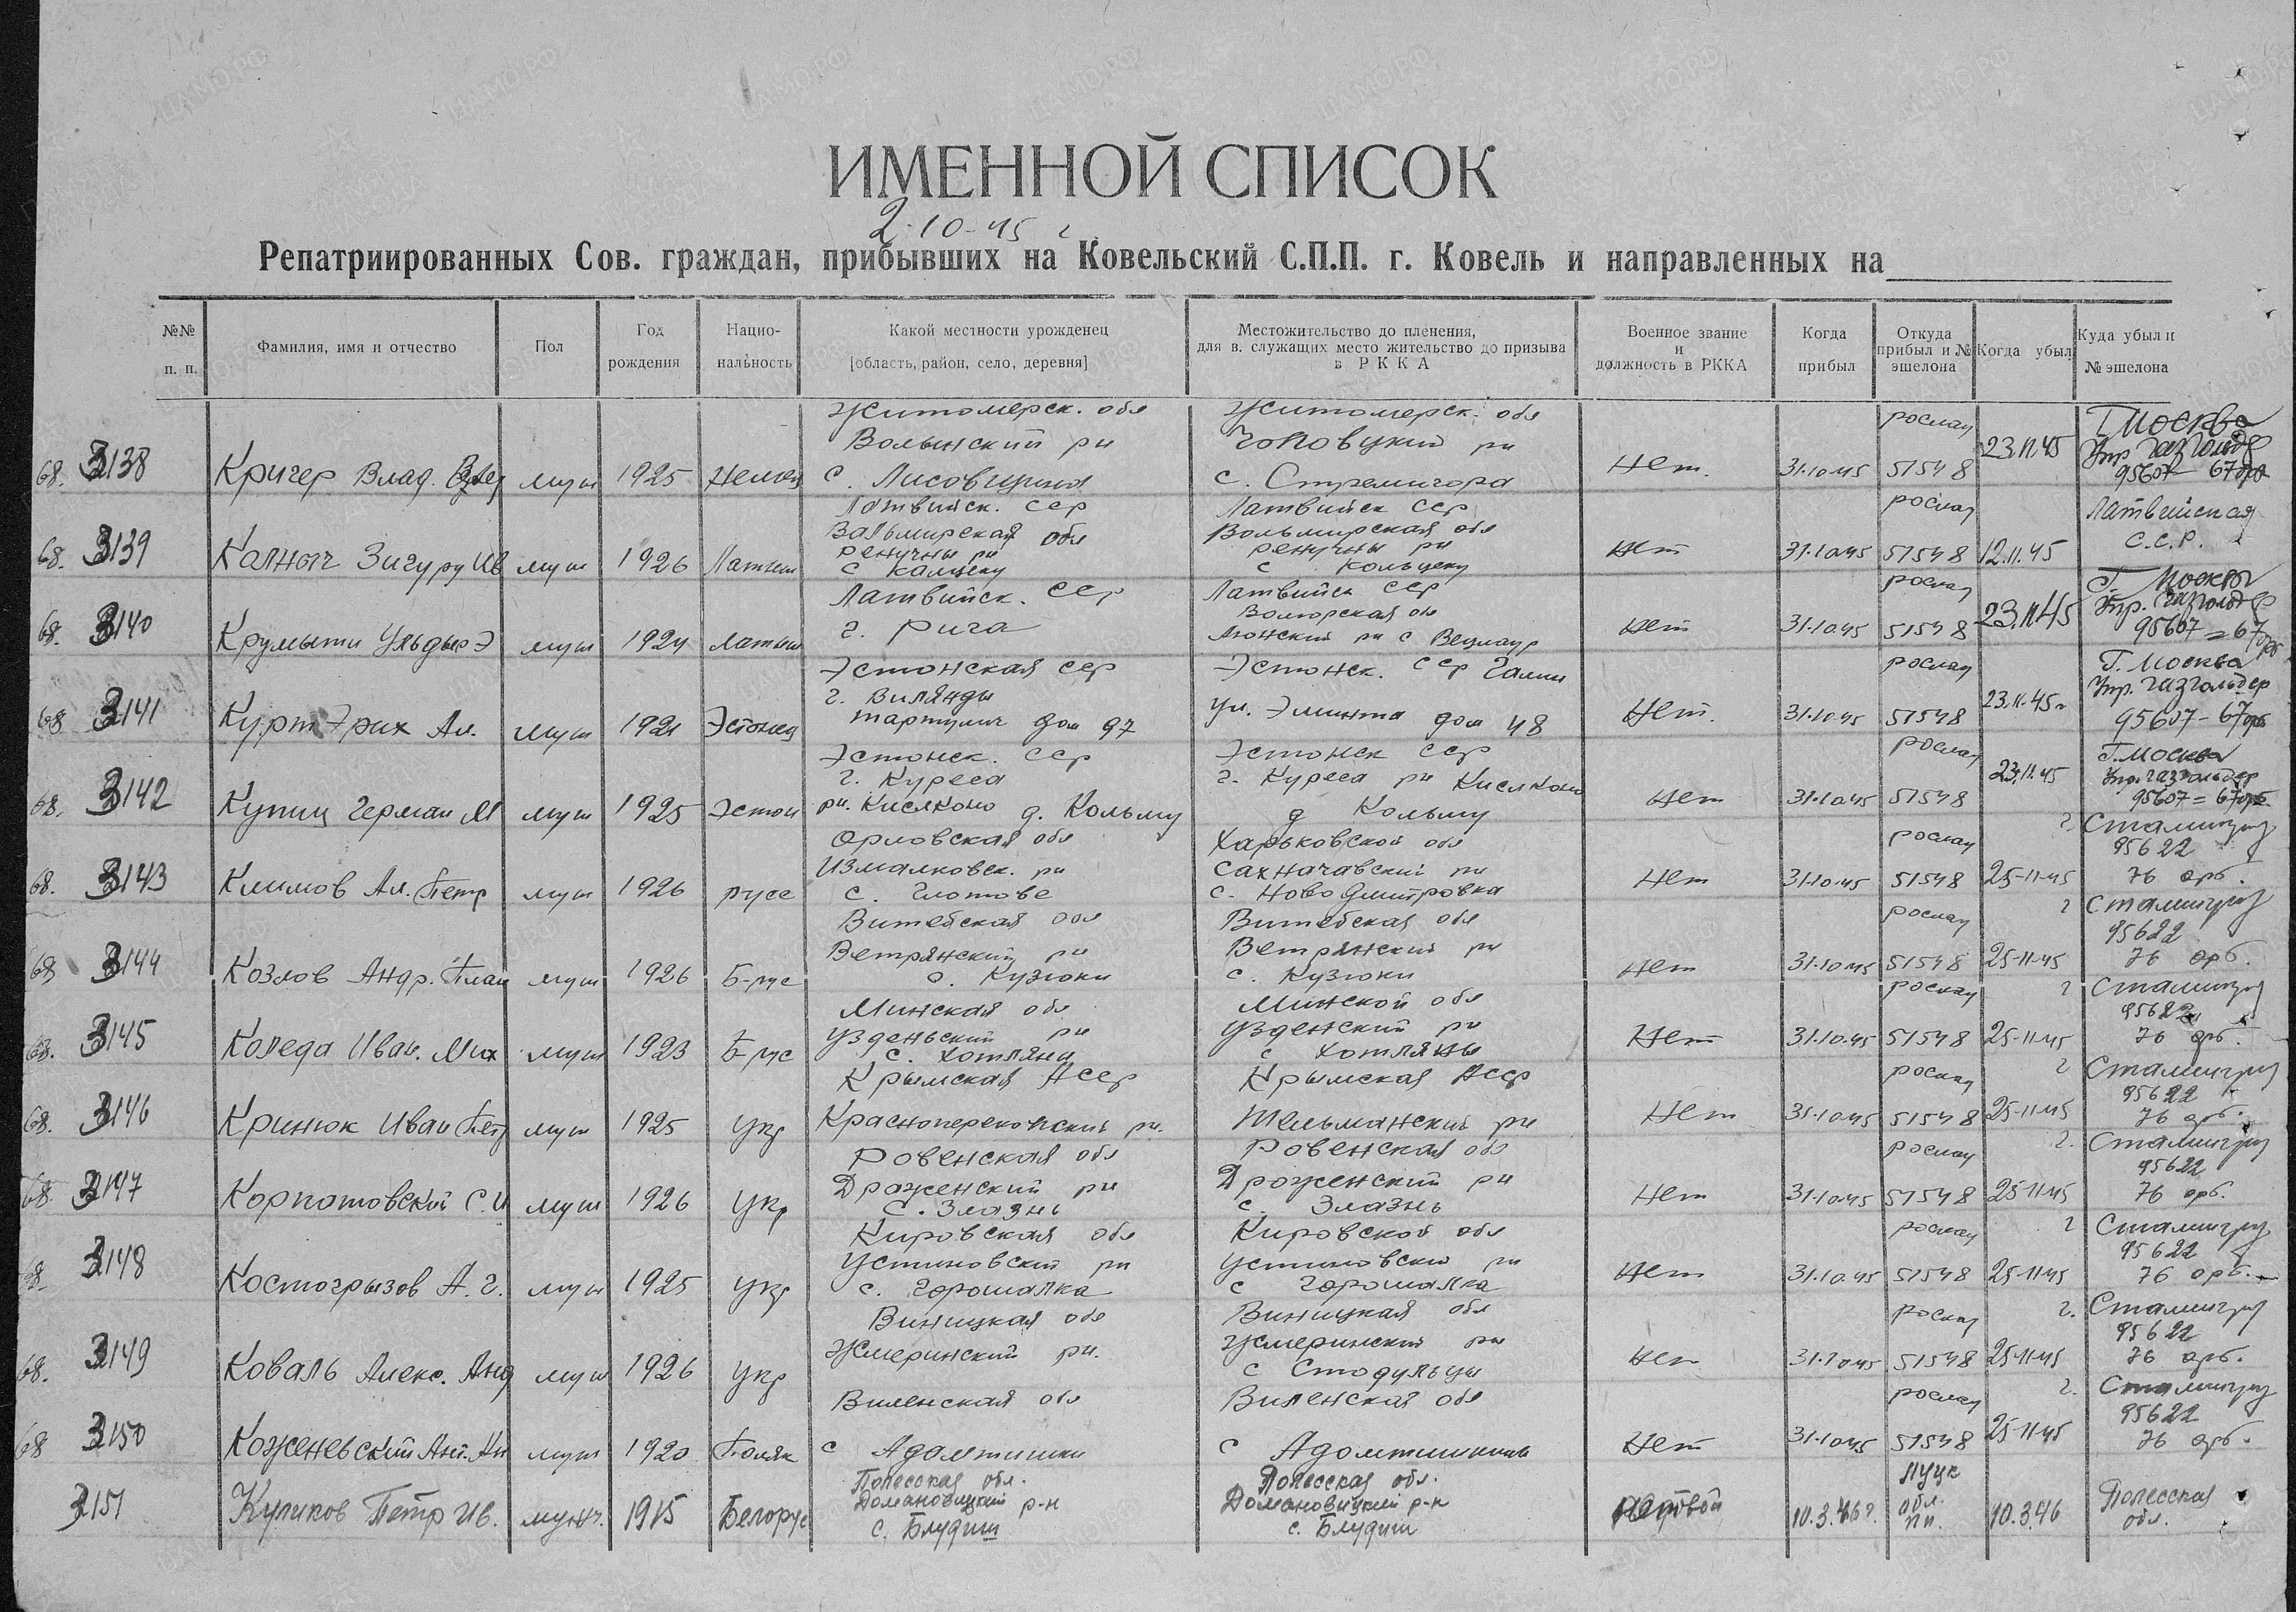 ИМЕННОЙ СПИСОК
2-10-45 г
Репатриированных Сов. граждан, прибывших на Ковельский С.П.П. г. Ковель и направленных на
№№ п. п. Фамилия, имя и отчество Пол Год рождения Нацио-нальность Какой местности урожденец [область, район, село, деревня] Местожительство до пленения, для в. служащих место жительство до призыва в РККА Военное звание и должность в РККА Когда прибыл Откуда прибыл и № эшелона Когда убыл Куда убыл и № эшелона
Житомерск. обл Житомерск. обл рослау Г Москва
Волынский рн Чоповуцкий рн 23.11.45 Упр газгольд
68. 3138 Кригер Влад. муж 1925 Немец с. Лисовщина с. Стремигора Нет. 31.10.45 51548 95607 67 орб
Латвийск. сср Латвийск сср рослау Латвийская
Вальмирская обл Вольмирская обл С.С.Р.
68. 3139 Калныч Зигуру Ив муж 1926 Латыш ренучны рн ренучны рн нет 31.10.45 51548 12.11.45
с Калцену с Кольцену
Латвийск. сср Латвийск сср рослау Г. Москва
68. 3140 муж 1924 латыш г. Рига нет 31.10.45 51548 23.11.45 Упр. газгольдер
95607=67 орб
Эстонская сср Эстонск. сср Талин рослау Г. Москва
г. Вилянди Упр. газгольдер
68 3141 Курт Эрих Ал. муж 1921 Эстонец дом 97 ул. Эминта дом 48 Нет. 31.10.45 51548 23.11.45г 95607-67 орб
Эстонск. сср Эстонск сср рослау Г. Москва
г. Куреса г. Куреса рн Кислконо Упр. газгольдер
68. 3142 Купиц Герман М муж 1925 эстон рн. Кислконо д. Кольму д Кольму нет 31.10.45 51548 23.11.45 95607=67 орб
Орловская обл Харьковской обл рослау г. Сталинград
Измалковск. рн Сахначавский рн 95622
68. 3143 Климов Ал. Петр муж 1926 русс с. Глотове с. Ново Дмитровка нет 31.10.45 51548 25-11-45 76 орб.
Витебская обл Витебская обл рослау г Сталинград
Ветрянский рн Ветрянский рн 95622
68 3144 Козлов Андр. План муж 1926 Б-рус с. Кузюки с. Кузюки нет 31.10.45 51548 25-11-45 76 орб.
Минская обл Минской обл рослау г Сталинград
Узденьский рн Узденский рн 95622
68. 3145 Коледа Иван. Мих муж 1923 Б-рус с. Хотляны с Хотляны Нет 31.10.45 51548 25-11-45 76 орб.
Крымская Асср Крымская Асср рослау г Сталинград
95622
68. 3146 Кринюк Иван Петр муж 1925 укр Красноперекопский рн. Тельманский рн Нет 31.10.45 51548 25-11-45 76 орб.
Ровенская обл Ровенская обл рослау г. Сталинград
Драженский рн Дроженский рн 95622
68. 3147 Корпотовский С.И муж 1926 укр с. Злазнь с. Злазнь нет 31.10.45 51548 25-11-45 76 орб.
Кировская обл Кировской обл рослау г Сталинград
Устиновский рн Устиновский рн 95622
68. 3148 Костогрызов А. Г. муж 1925 укр с. Горошалка с Горошалка нет 31.10.45 51548 25-11-45 76 орб.
Виницкая обл Виницкая обл рослау г. Сталинград
Жмеринский рн. Жмеринский рн 95622
68. 3149 Коваль Алекс. Анд муж 1926 укр с Стодульцы нет 31.10.45 51548 25-11-45 76 орб.
Виленская обл Виленская обл рослау г. Сталинград
95622
68 3150 Коженевский Ант. Ан муж 1920 Поляк с Адомтишки с Адомтишки нет 31.10.45 51548 25-11-45 76 орб.
Полесская обл. Полесская обл. Луцк Полесская
Домановицкий р-н Домановицкий р-н обл. обл.
3151 Куликов Петр Ив. мужч. 1915 Белорус с. Блудиш с. Блудиш рядовой 10.3.46г. пп. 10.3.46